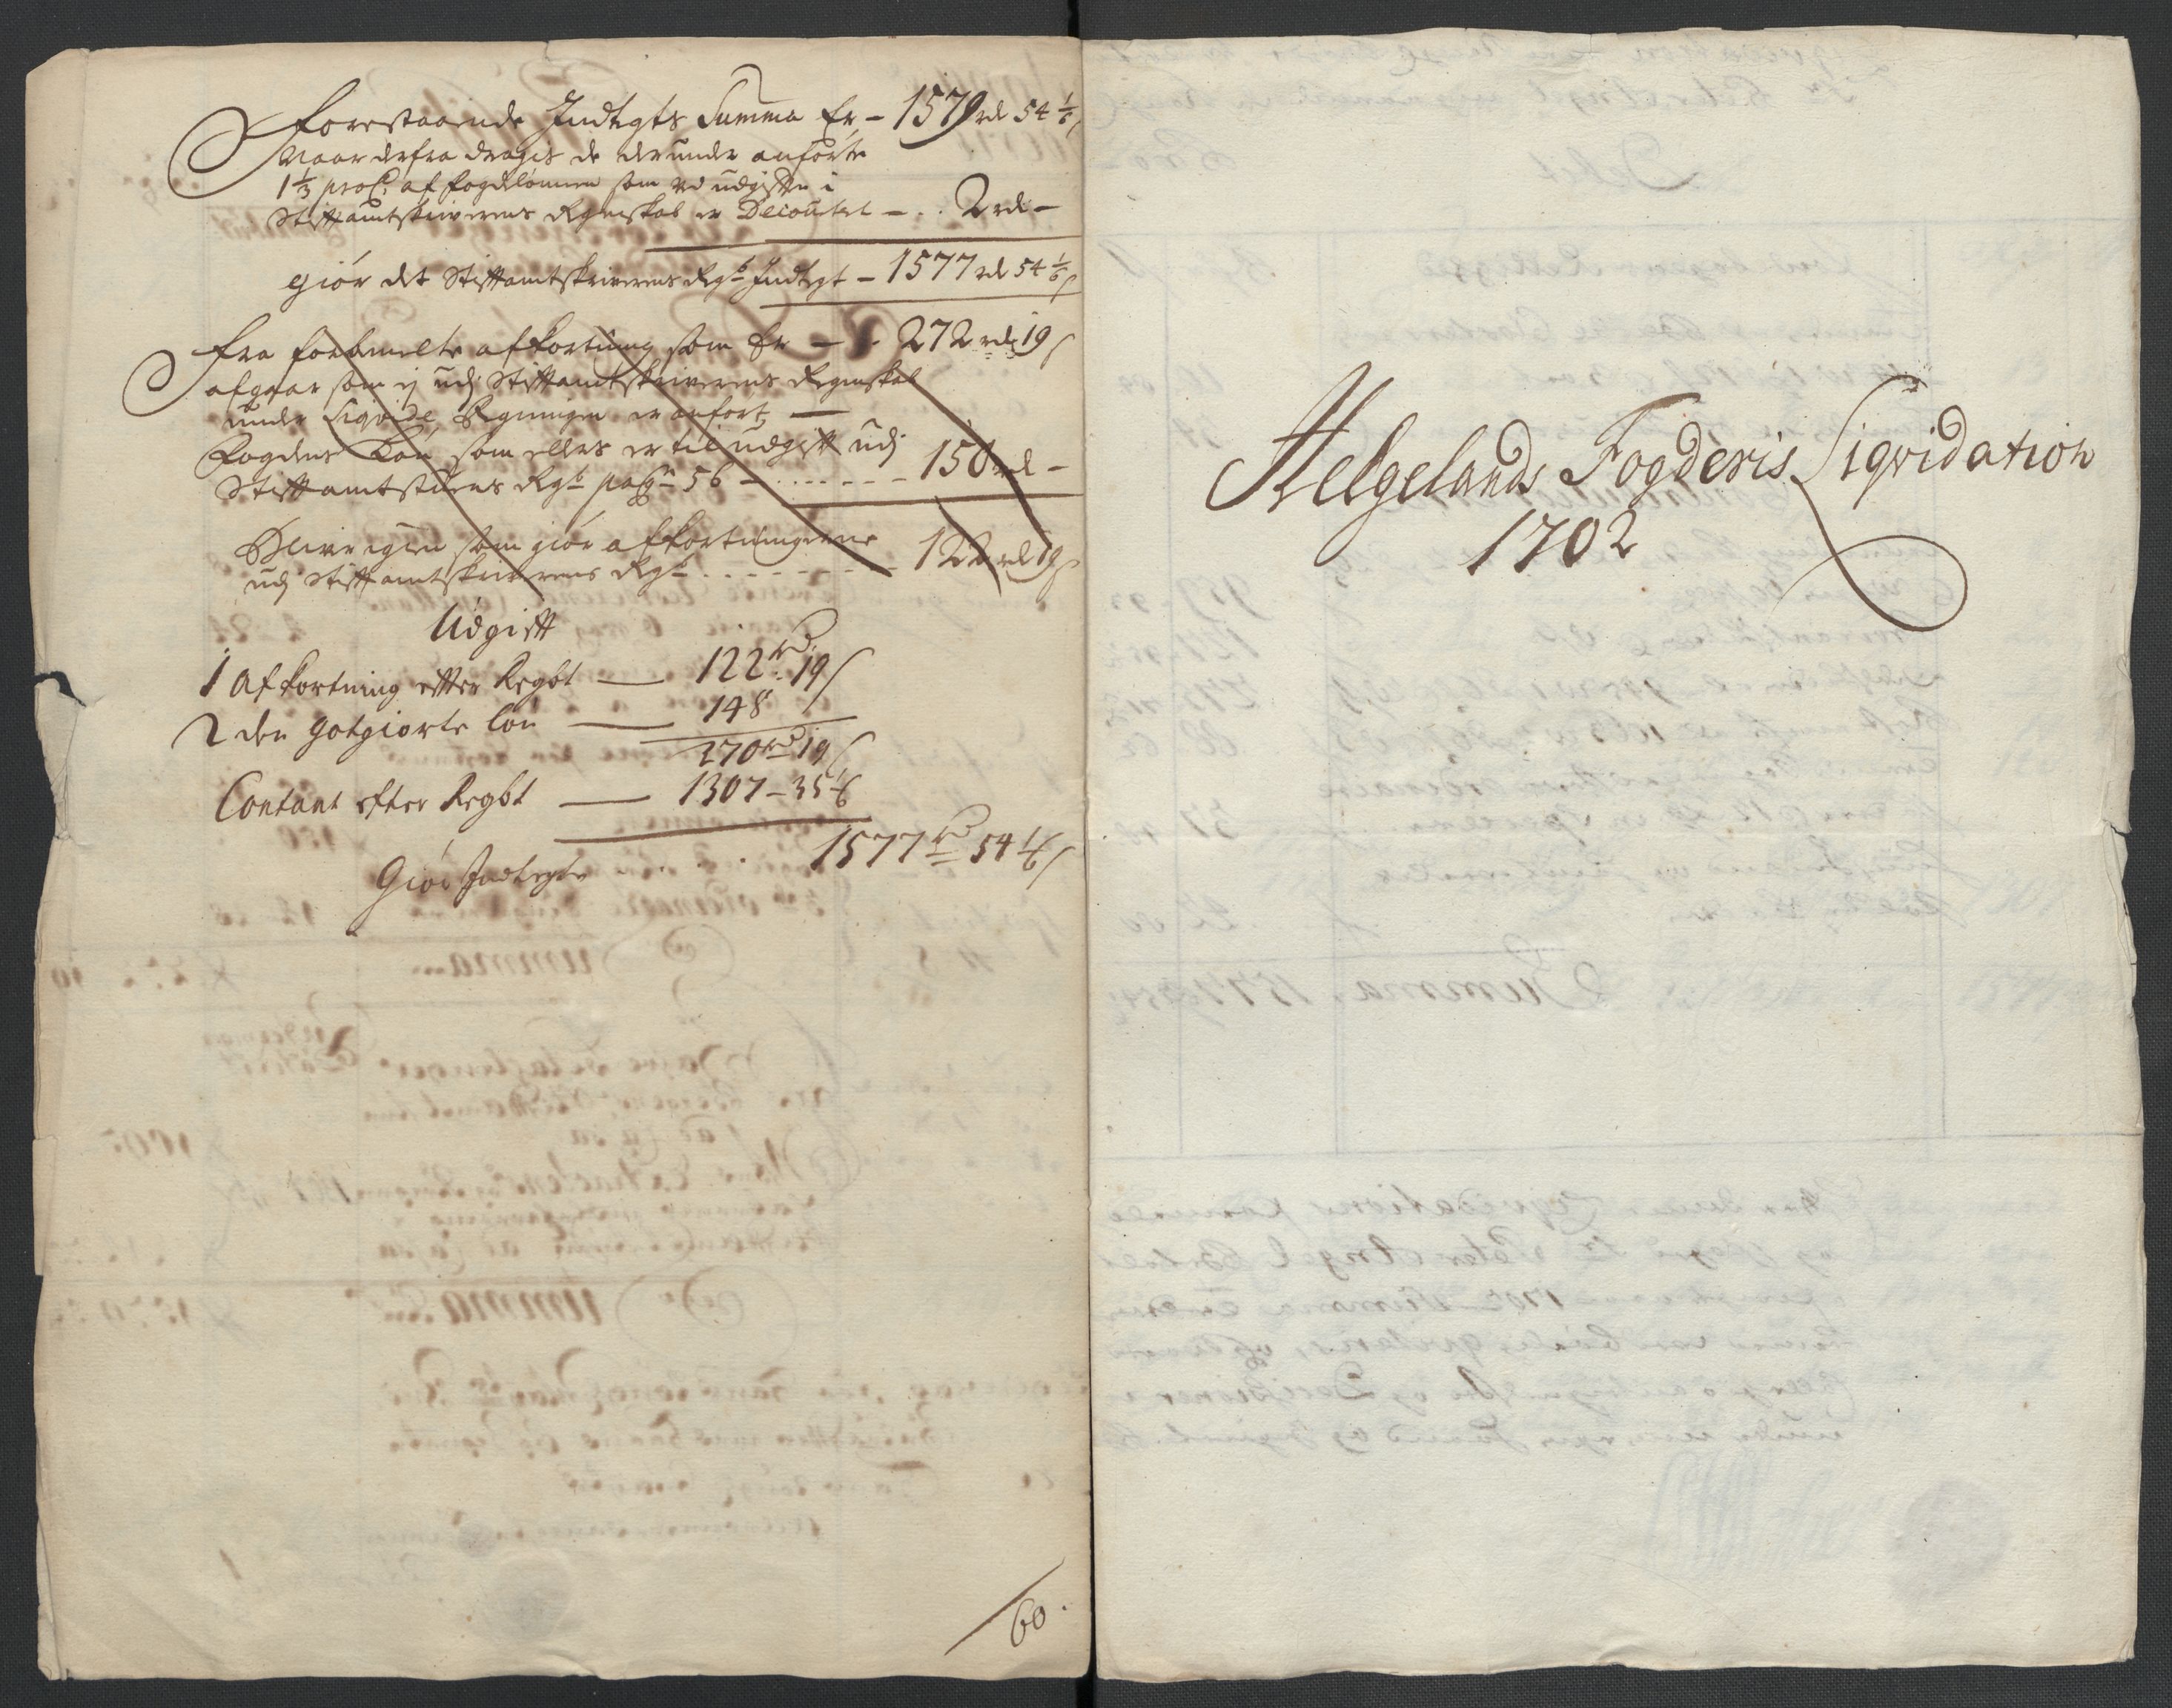 Forestaaende Indtegts Summa Er – 1579 rd 54 1/6 s
Naar derfra dragis de derunder anførte
1 1/3 proC: af fogdelønnen som ved udgiften i
Stiftamtskriverens Regenskab er Decourtert – . . 2 rd –
giør det Stiftamtskriverens Regb Indtegt – 1577 rd 54 1/6 s
Fra forbemelte afkortning som Er – . 272 rd 19 s
afgaar som ej udj Stiftamtskriverens Regenskab
under Liqvide Regningen er anført, —
Fogdens Løn som ellers er til udgift udj
Stiftamtstuens Regb pag 56 – . . . . . . – 150 rd –
Bliver igien som giør afkortningerne
udj Stiftamtskriverens Regb . . . . . . . 122 rd 19 s
Udgift
1 Afkortning efter Regbt — 122 rd 19 s
2 den gotgiorte løn — 148
270 rd 19 s
Contant efter Regbt — 1307 – 35 1/6
Giør Indtegte . . . 1577 rd 54 1/6 s
60.
Helgelands Fogderis Liqvidation
1702